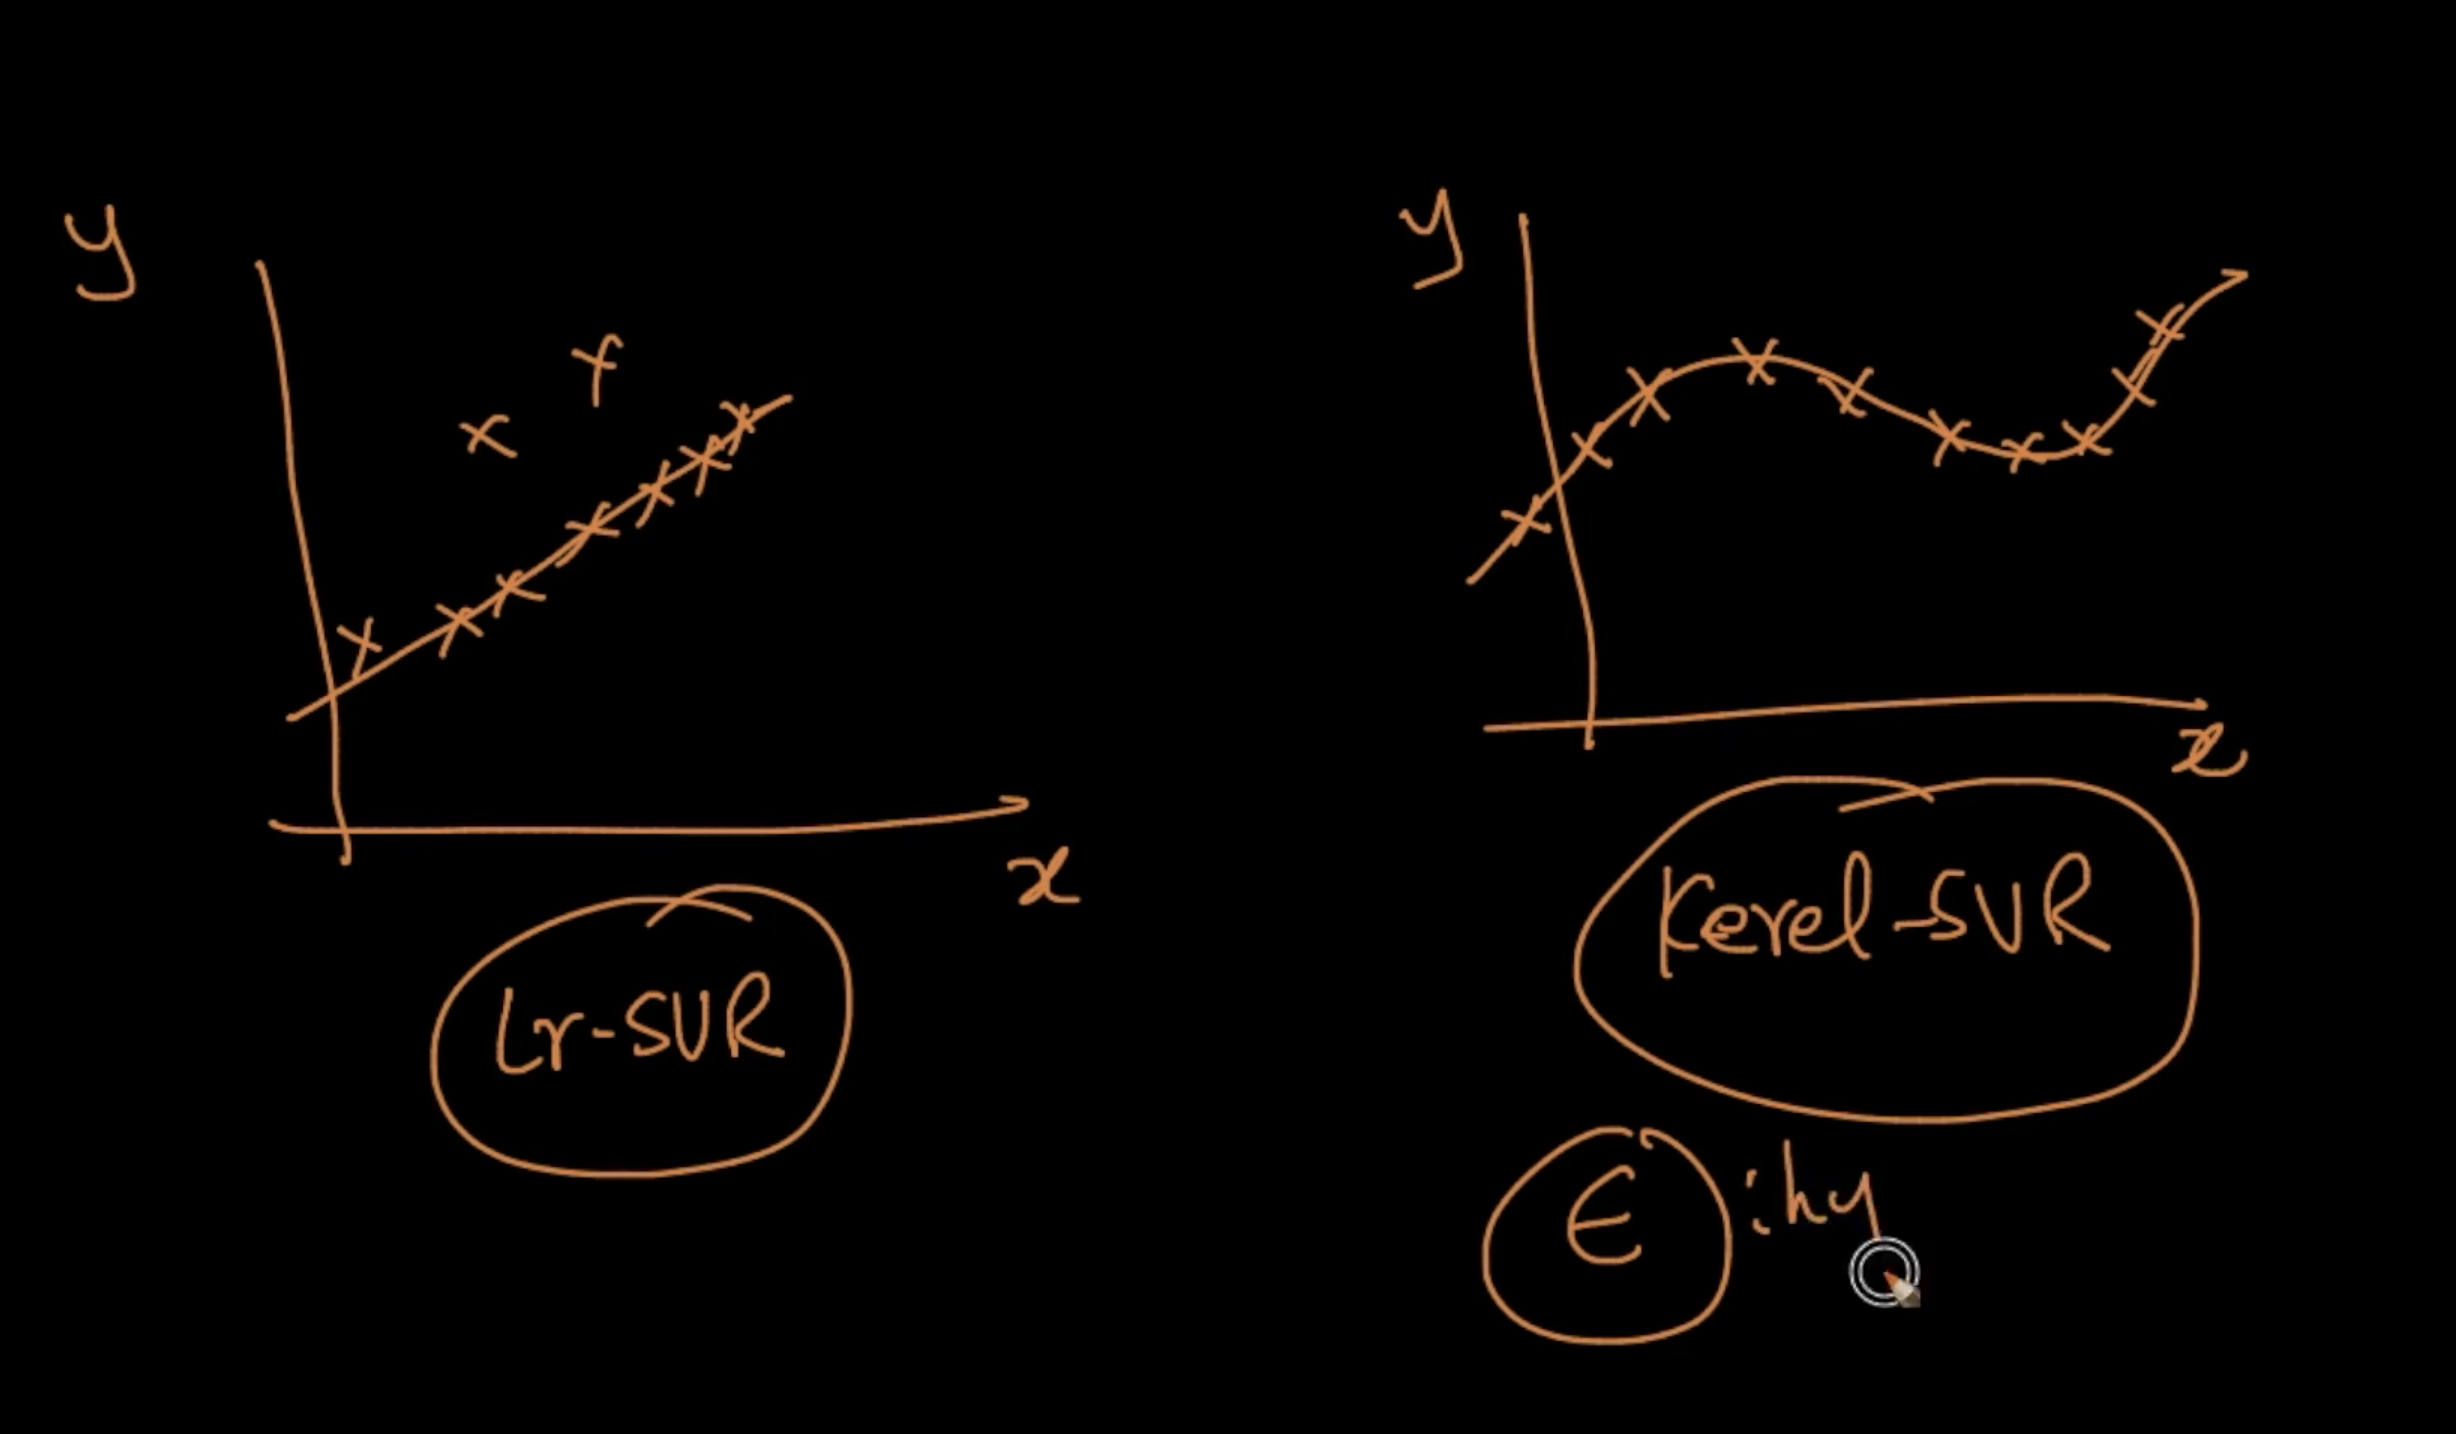 y
x
Lr-SVR
y
x
Kerel-SVR
ϵ : hy